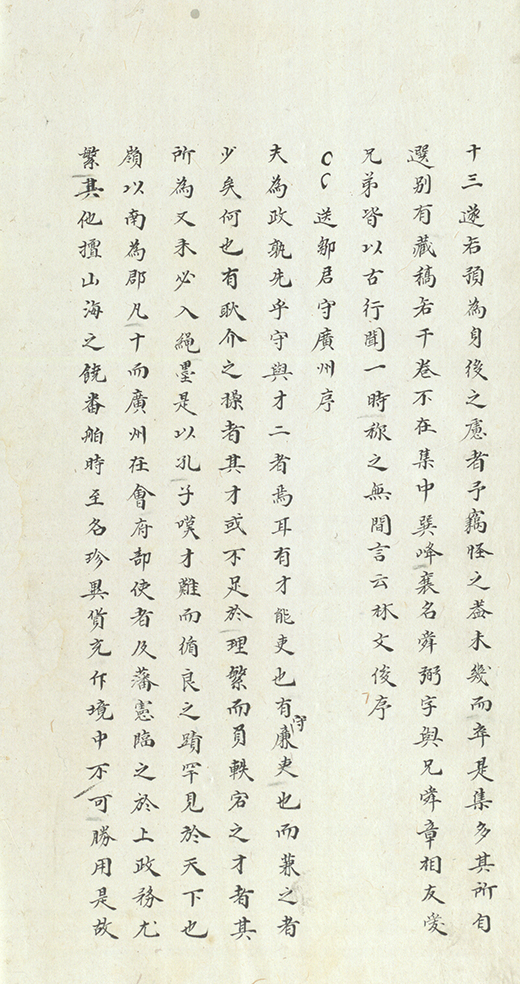 十三遂若預為身後之慮者予竊怪之蓋未幾而卒是集多其所自
選别有藏稿若干卷不在集中巽峰襄名舜弼字與兄舜章相友愛
兄弟皆以古行聞一時称之無間言云林文俊序
○○送鄒君守廣州序
夫為政孰先乎守與才二者焉耳有才能吏也有守廉吏也而兼之者
少矣何也有耿介之操者其才或不足於理繁而負軼宕之才者其
所為又未必入繩墨是以孔子嘆才難而循良之蹟罕見於天下也
嶺以南為郡凡十而廣州在會府部使者及藩憲臨之於上政務尤
繁其他擅山海之饒番舶時至名珍異貨充仵境中不可勝用是故